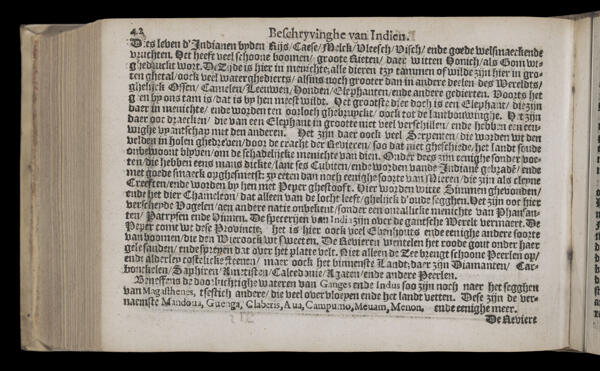 42
Beschryvinghe van Indien.
Dees leven d'Indianen byden Rijs/ Caese/ Melck/ Vleesch/ Visch/ ende goede welsmaeckende
vruchten. Het heeft veel schoone boomen/ groote Rieten/ daer witten Honich/ als Gom wt-
ghedruckt wort. De Zyde is hier in menichte; alle dieren tzy tammen of wilde zijn hier in gro-
ten ghetal/ oock veel waterghedierts/ alsins noch grooter dan in andere deelen des Werelds/
ghelijck Ossen/ Camelen/ Leeuwen/ Honden/ Elephanten/ ende andere gedierten. Voorts het
gen by ons tam is/ dat is by hen meest wildt. Het grootste dier doch is een Elephant/ die zijn
daer in menichte/ ende worden ten oorloch ghebruyckt/ oock tot de lantbouwinghe. Het zijn
daer oot draecken/ die van een Elephant in grootte niet veel verschillen/ ende hebben een eeu-
wighe vyantschap met den anderen. Het zijn daer oock veel Serpenten/ die worden wt den
velden in holen ghedreven/ door de cracht der Revieren/ soo dat niet gheschiede/ het landt soude
onbewoont blyven/ om de schadelijcke menichte van dien. Onder dees zijn eenighe sonder voe-
ten/ die hebben eens mans dickte/ lanc ses Cubiten/ ende worden vande Indiane gebradē/ ende
met goede smaeck opghesmetst: zy eeten dan noch eenighe soorte van Mieren/ die zijn als cleyne
Creeften/ ende worden by hen met Peper ghestooft. Hier worden witte Simmen ghevonden/
ende het dier Chameleon/ dat alleen van de locht leeft/ ghelijck d'oude segghen. Het zijn oot hier
verscheyde Vogelen/ aen andere natie onbekent/ sonder een ontallicke menichte van Phasan-
ten/ Patrysen ende Hinnen. De speceryen van Indi zijn over de gantsche Werelt vermaert. De
Peper comt wt dese Provincie; het is hier oock veel Ebenhouts ende eenighe andere soorte
van boomen/ die den Wieroock wt sweeten. De Revieren wentelen het roode gout onder haer
gele sanden/ ende spreyen dat over het platte velt. Niet alleen de Zee brengt schoone Peerlen op/
ende alderley costelicke steenen/ maer oock het binnenste Landt; daer zijn Diamanten/ Car-
bonckelen/ Saphiren/ Ametisten/ Calcedonie/ Agaten/ ende andere Peerlen.
Beneffens de doorluchtighe wateren van Ganges ende Indus soo zijn noch naer het segghen
van Magasthenes, tsestich andere/ die veel overvloepen ende het landt vetten. Dese zijn de ver-
naemste Mandoua, Guenga, Claberis, Aua, Campumo, Meuam, Menon, ende eenighe meer.
De Reviere